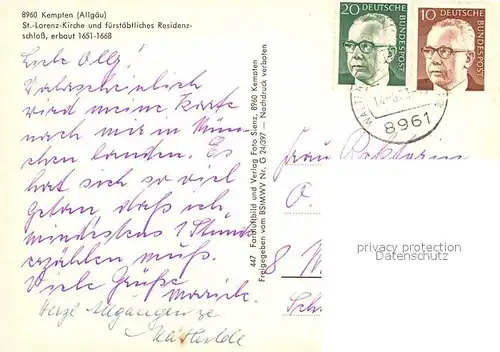 8960 Kempten (Allgäu)
St.-Lorenz-Kirche und fürstäbtliches Residenz-
schloß, erbaut 1651-1668
Liebe Olly!
Wahrscheinlich
wird meine Karte
nach mir in Mün-
chen landen. Es
hat sich so viel
getan daß ich
mindestens 1 Stunde
erzählen muß.
Viele Grüße
Marie
Herzl
Mathilde
447 Farbluftbild und Verlag Foto Sienz, 8960 Kempten
Freigegeben vom BStMWV Nr. G 24/397. — Nachdruck verboten
20 DEUTSCHE BUNDESPOST
10 DEUTSCHE BUNDESPOST
8961
Frau Rektorin
O.
8 M
Sch
privacy protection
Datenschutz